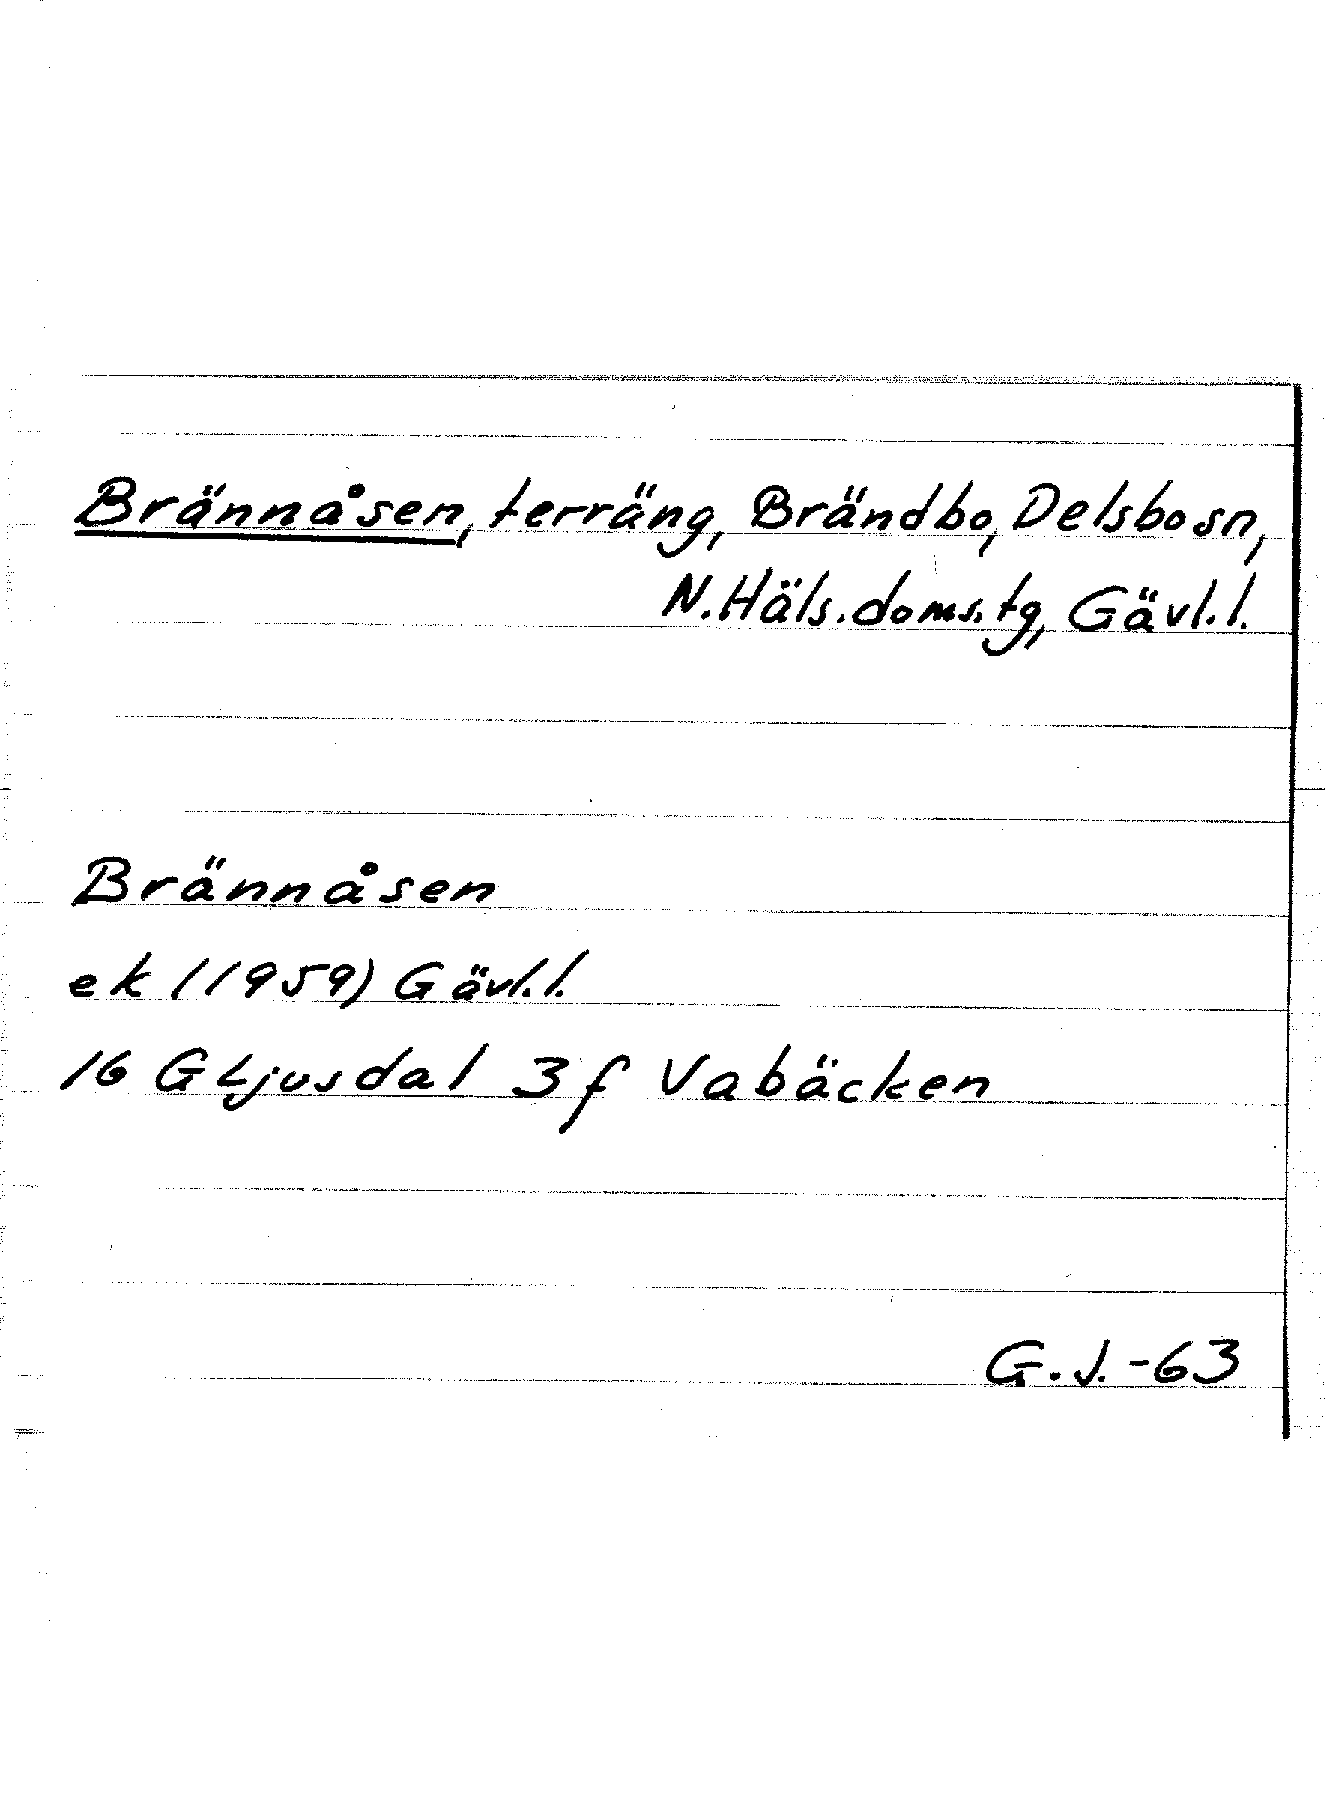 Brännåsen, terräng, Brändbo, Delsbo sn,
N. Häls. doms. tg, Gävl. l.
Brännåsen
ek (1959) Gävl. l.
16 G Ljusdal 3 f Vabäcken
G. J. -63